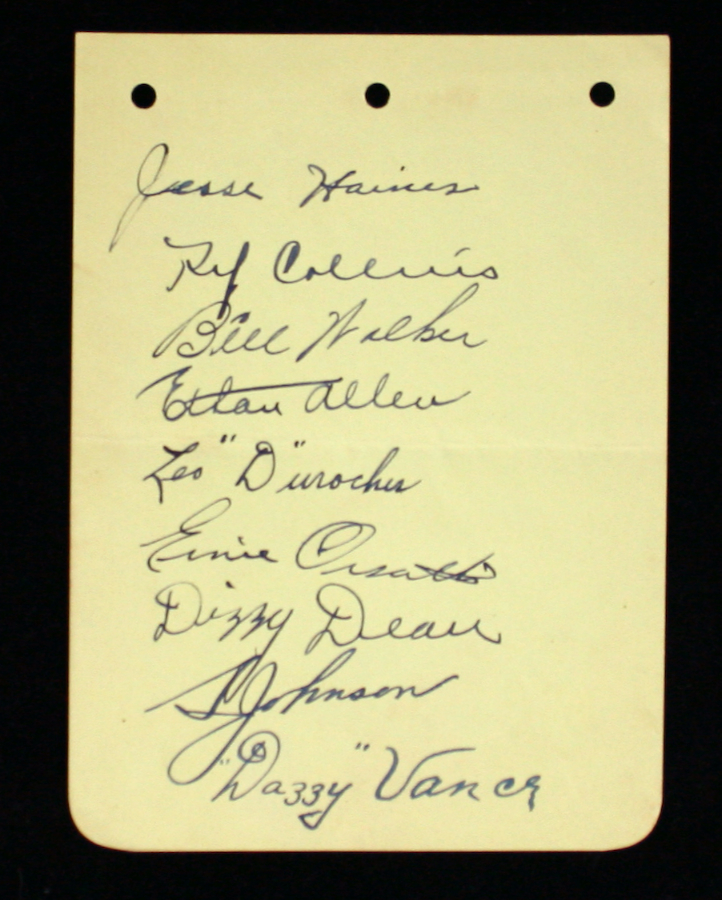 Jesse Haines
Rip Collins
Bill Walker
Ethan Allen
Leo "D"urocher
Ernie Orsatti
Dizzy Dean
S Johnson
"Dazzy" Vance